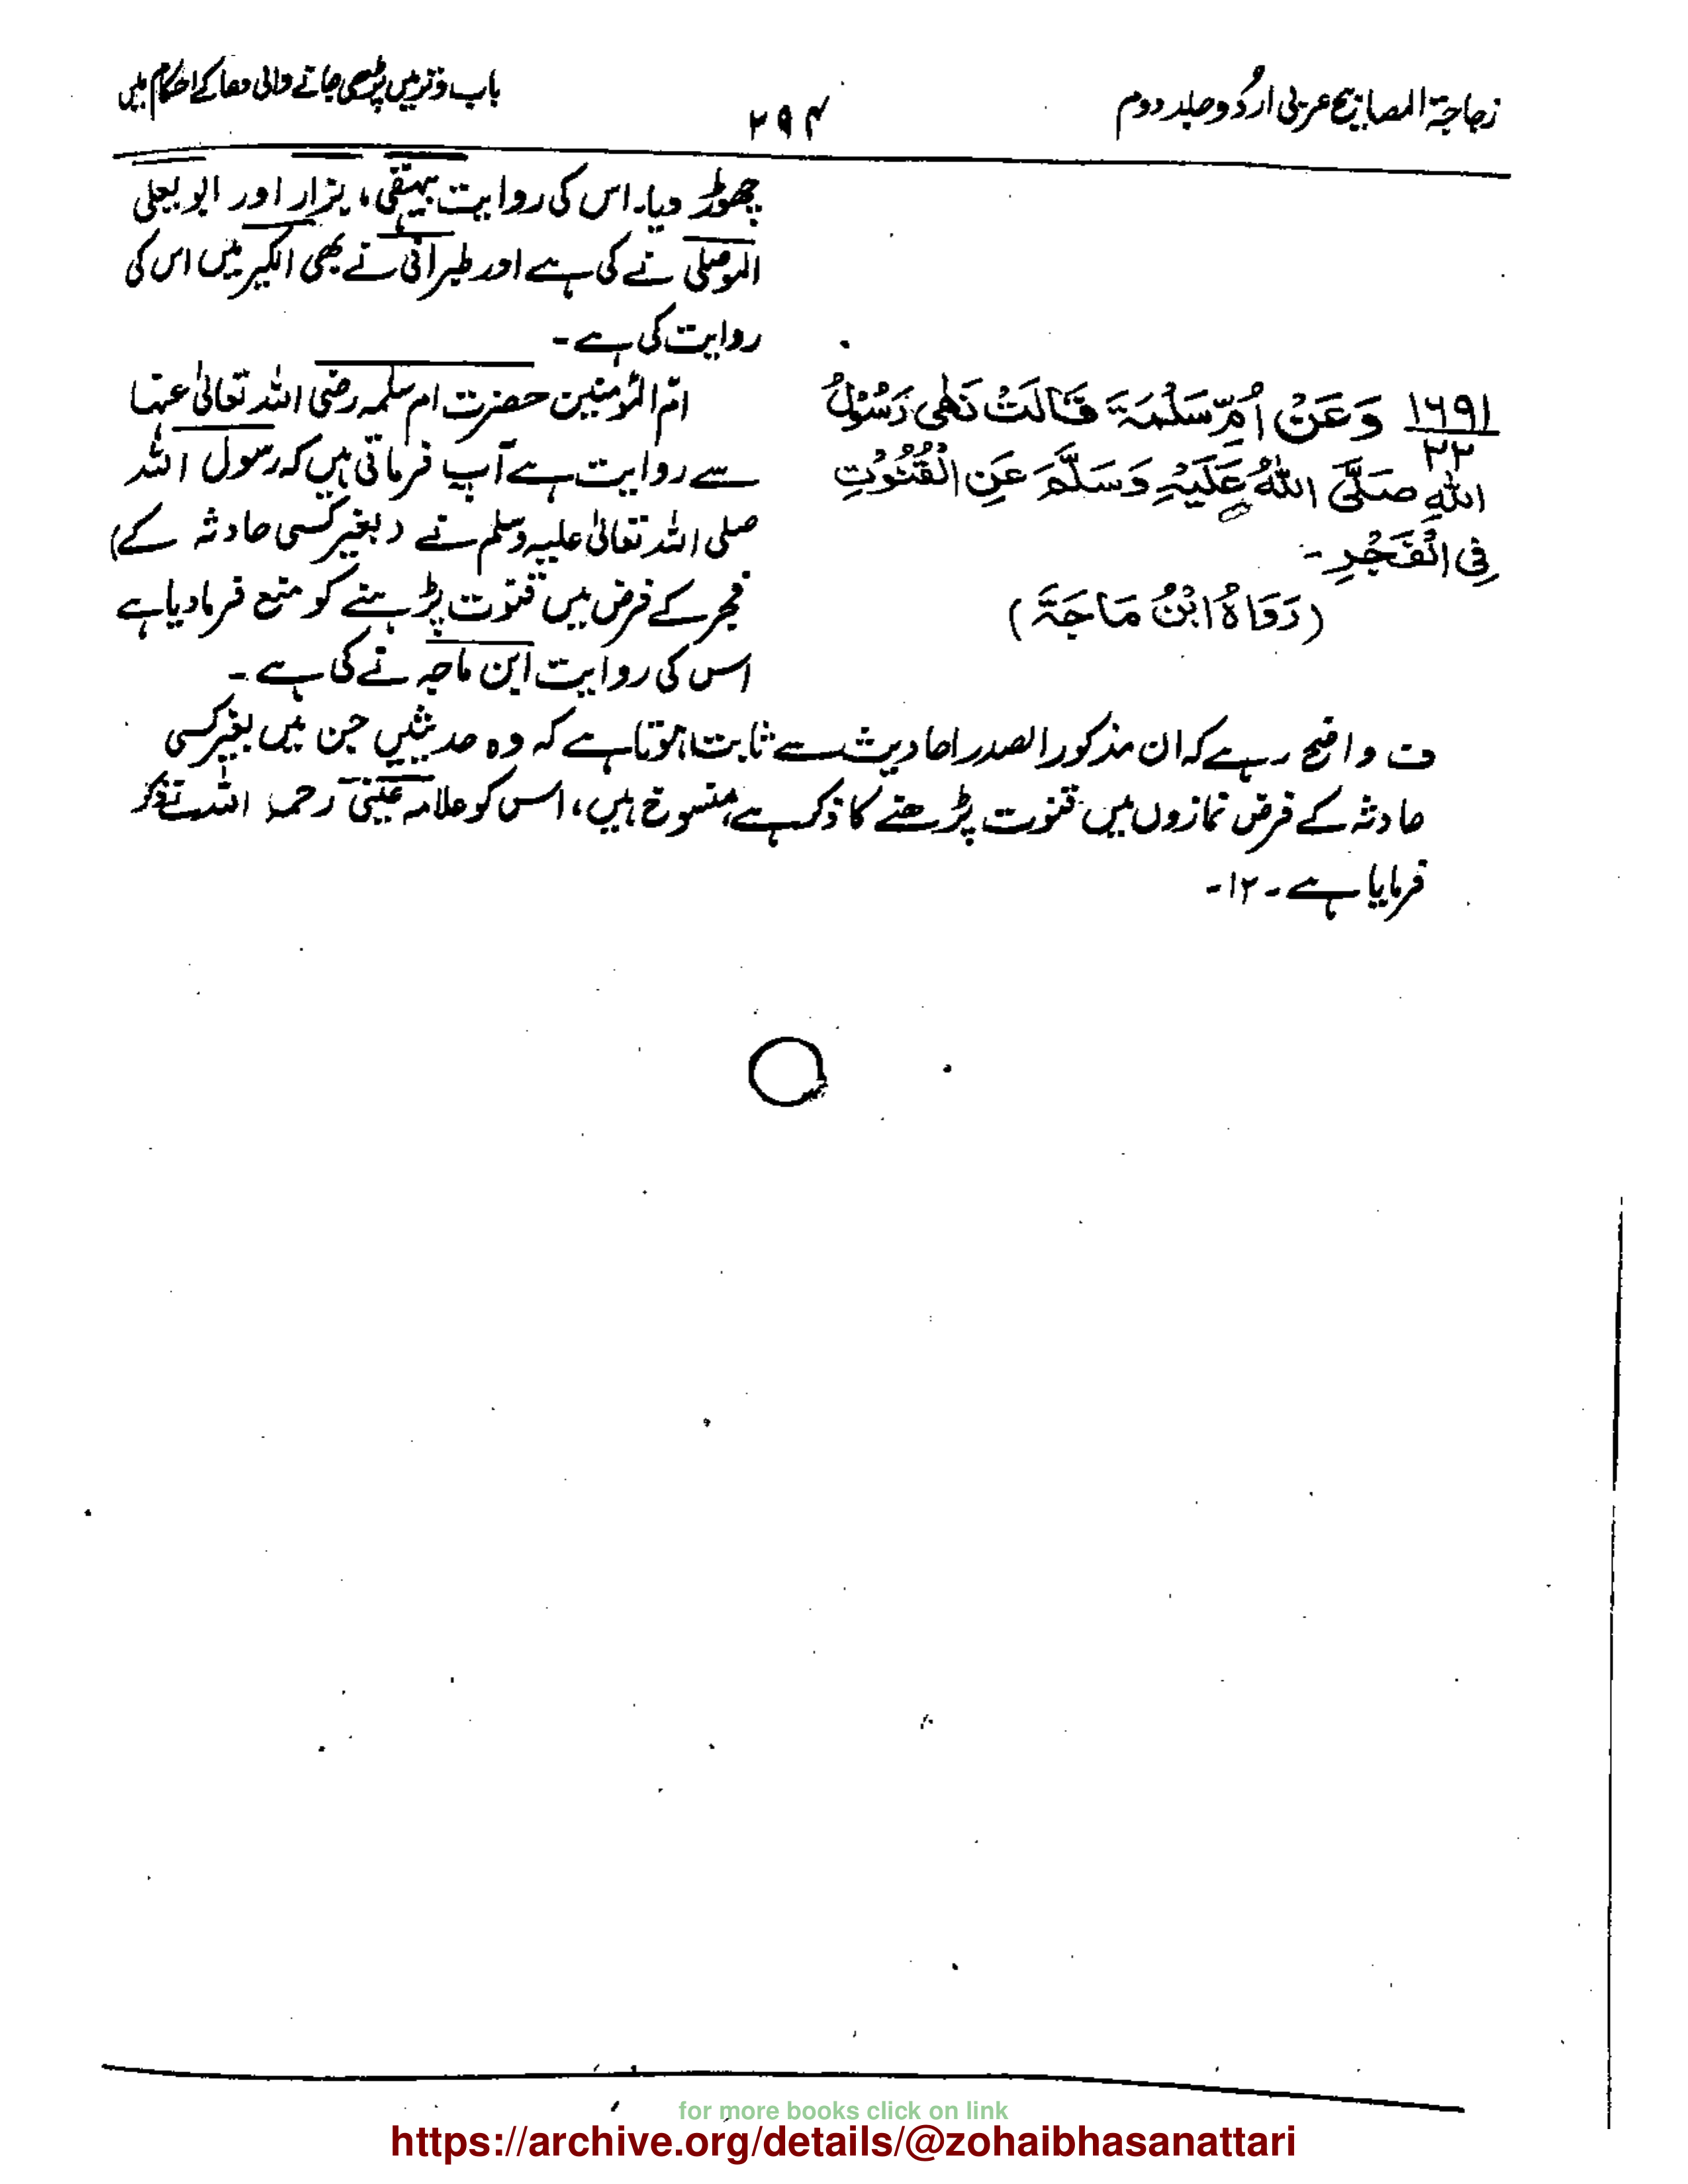 زجاجۃ المصابیح عربی اردُو جلد دوم
۲۹۴
باب وتر میں پڑھی جانے والی دعا کے احکام میں
چھوڑ دیا۔ اس کی روایت بیہقی، بزار اور ابو یعلی
الموصلی نے کی ہے اور طبرانی نے بھی الکبیر میں اس کی
روایت کی ہے۔
۱۶۹۱
۲۲
وَعَنْ اُمِّ سَلَمَۃَ قَالَتْ نَھٰی رَسُوْلُ
اللّٰہِ صَلَّی اللّٰہُ عَلَیْہِ وَسَلَّمَ عَنِ الْقُنُوْتِ
فِی الْفَجْرِ۔
(رَوَاہُ ابْنُ مَاجَۃَ)
امّ المؤمنین حضرت ام سلمہ رضی اللہ تعالیٰ عنہا
سے روایت ہے آپ فرماتی ہیں کہ رسول اللہ
صلی اللہ تعالیٰ علیہ وسلم نے (بغیر کسی حادثہ کے)
فجر کے فرض میں قنوت پڑہنے کو منع فرما دیا ہے
اس کی روایت ابن ماجہ نے کی ہے۔
ف واضح رہے کہ ان مذکور الصدر احادیث سے ثابت ہوتا ہے کہ وہ حدیثیں جن میں بغیر کسی
حادثہ کے فرض نمازوں میں قنوت پڑھنے کا ذکر ہے، منسوخ ہیں، اس کو علامہ عینی رحمہ اللہ نے ذکر
فرمایا ہے۔ ۱۲۔
for more books click on link
https://archive.org/details/@zohaibhasanattari